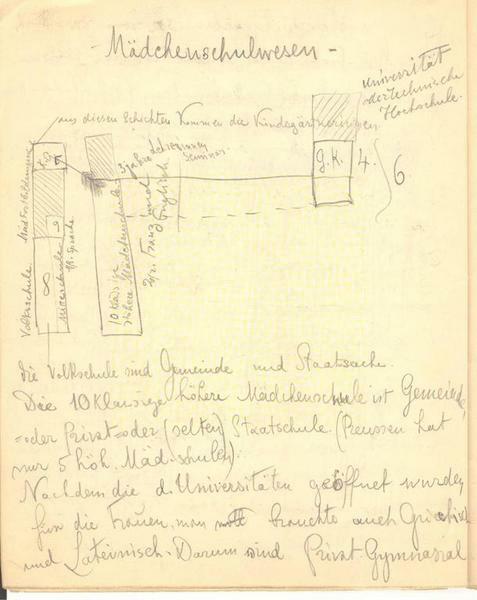 - Mädchenschulwesen -
Universität
oder technische
Hochschule.
aus diesen Schichten kommen die Kindergärtnerinnen
G.K. 4.
6
3 jahre Lehrerinnen
Seminar
Mäd. Fortbildung
Volksschule 8
Mittelschule
fr. Sprache
10 Klassige
höhere Mädchenschule
franz und
Englisch
Die Volkschule sind Gemeinde und Staatsache.
Die 10 Klassige höhere Mädchenschule ist Gemeinde
=oder Privat=oder (selten) Staatschule. (Preussen hat
nur 5 höh. Mäd. schulen).
Nachdem die d. Universitäten geöffnet wurden
für die Frauen, man brauchte auch Griechisch
und Lateinisch. Darum sind Privat-Gymnasial